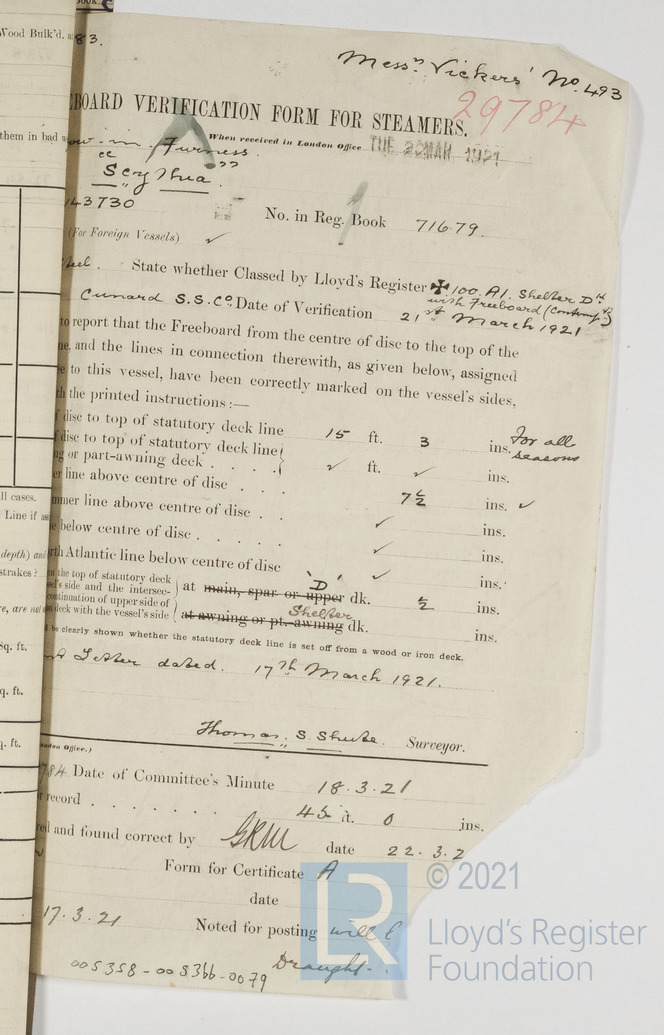 BOOK C
Wood Bulk'd. a
them in bad w
ll cases.
Line if as
depth) and
strakes?
re, are not
Sq. ft.
q. ft.
q. ft.
83.
Messrs. Vickers' No. 493
EBOARD VERIFICATION FORM FOR STEAMERS.
29784
When received in London Office TUE 22 MAR 1921
ow-in-Furness
"Scythia"
143730
No. in Reg. Book 71679.
(For Foreign Vessels) ✓
teel. State whether Classed by Lloyd's Register ✠ 100. A1. Shelter Dk
with Freeboard (Contempd)
Cunard S.S. Co. Date of Verification 21st March 1921
to report that the Freeboard from the centre of disc to the top of the
ne, and the lines in connection therewith, as given below, assigned
e to this vessel, have been correctly marked on the vessel's sides,
th the printed instructions:—
f disc to top of statutory deck line 15 ft. 3 ins. For all
seasons
f disc to top of statutory deck line
ng or part-awning deck . . . . ✓ ft. ✓ ins.
er line above centre of disc . . . 7½ ins. ✓
mmer line above centre of disc . . ✓ ins.
e below centre of disc . . . . . ✓ ins.
rth Atlantic line below centre of disc ✓ ins.
n the top of statutory deck
el's side and the intersec-
ontinuation of upper side of
deck with the vessel's side
at main, spar or upper 'D' dk. ½ ins.
at awning or pt.-awning Shelter dk. ins.
d be clearly shown whether the statutory deck line is set off from a wood or iron deck.
Letter dated. 17th March 1921.
Thomas S. Shute. Surveyor.
ondon Office.)
784 Date of Committee's Minute 18.3.21
r record . . . . . . . 45 ft. 0 ins.
ed and found correct by GRM date 22.3.2
Form for Certificate A
date
17.3.21 Noted for posting will b
Draught.
005358-005366-0079
© 2021
LR
Lloyd's Register
Foundation